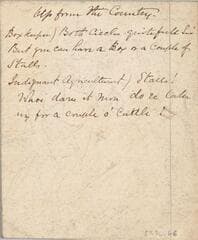 Up from the Country.
Box keeper) Both Circles quite full Sir
But you can have a Box or a Couple of
Stalls.
Indignant Agriculturist) Stalls!
Whoi dang it Mon do ee take
us for a couple o' Cattle!